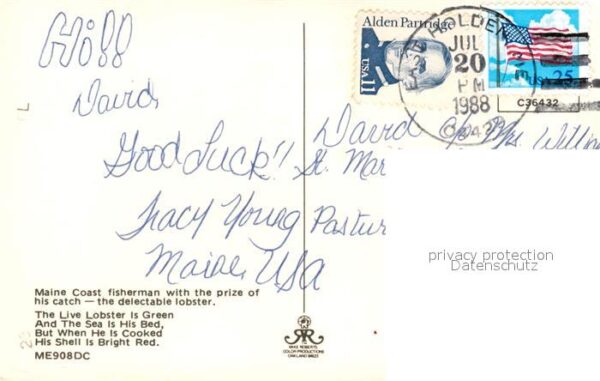 Hi!!
David,
Good Luck!!
Tracy Young
Maine, USA
Maine Coast fisherman with the prize of
his catch — the delectable lobster.
The Live Lobster Is Green
And The Sea Is His Bed,
But When He Is Cooked
His Shell Is Bright Red.
ME908DC
MIKE ROBERTS
COLOR PRODUCTIONS
OAKLAND 94623
Alden Partridge
USA 11
USA 25
C36432
HOLDEN
JUL
20
PM
1988
David c/o Mrs
St. Mar
Pastur
privacy protection
Datenschutz